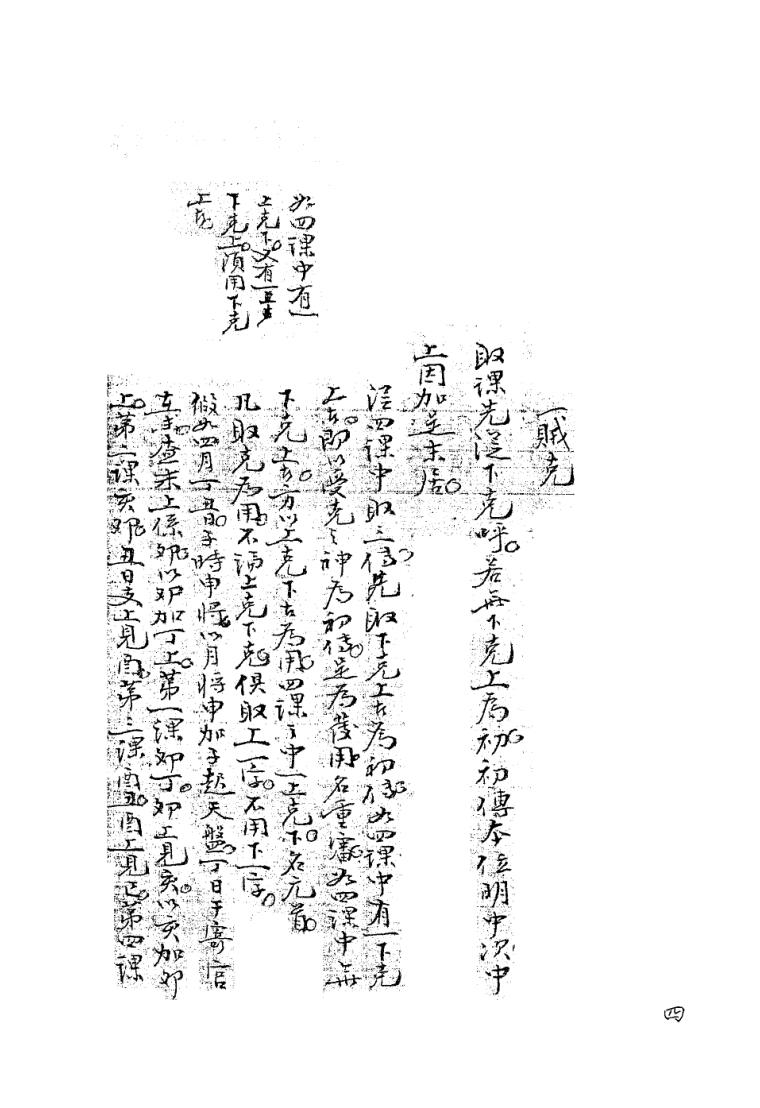 一賊克
取課先從下克呼若無下克上為初初傳本位明中次中
上因加是末居
從四課中取三傳先取下克上者為初傳如四課中有一下克
上者即以受克之神為初傳是為發用名重審如四課中無
下克上者方以上克下者為用四課之中一上克下名元首
凡取克為用不論上克下克俱取上一字不用下一字
假如四月丁丑日子時申將以月將申加子起天盤丁日干寄官
在未查未上係卯以卯加丁上第一課卯丁卯上見亥以亥加卯
上第二課亥卯丑日支上見酉第三課酉丑酉上見巳第四課
如四課中有一
上克下又有一
下克上須用下克
上者
四